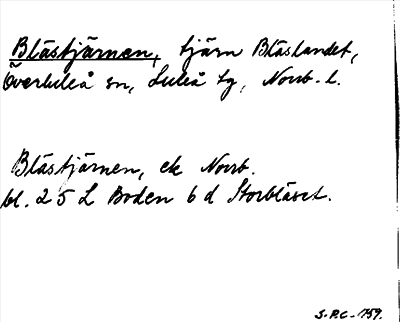 Blästjärnen, tjärn Bläslandet,
Överluleå sn, Luleå tg, Norrb. l.
Blästjärnen, ek Norrb.
bl. 25 L Boden 6 d Storbläset.
S.P.C. 159.